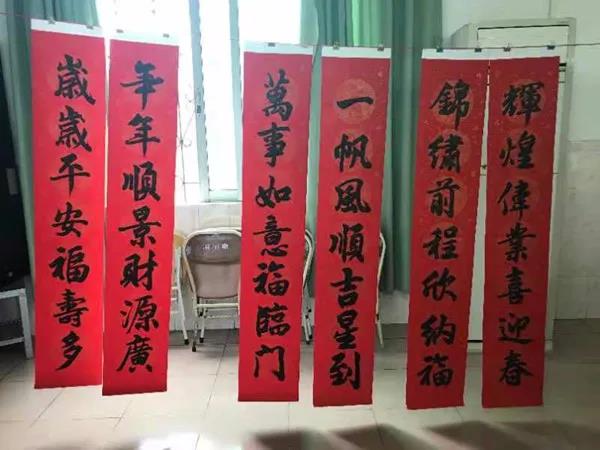 輝煌偉業喜迎春
錦繡前程欣納福
一帆風順吉星到
萬事如意福臨门
年年順景財源廣
歲歲平安福壽多